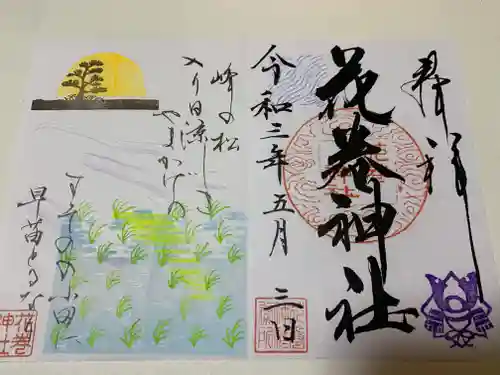 奉拝
花巻神社
令和三年五月三日
峰の松
入り日涼しき
やまかげの
すその小田に
早苗とるなり
花巻神社